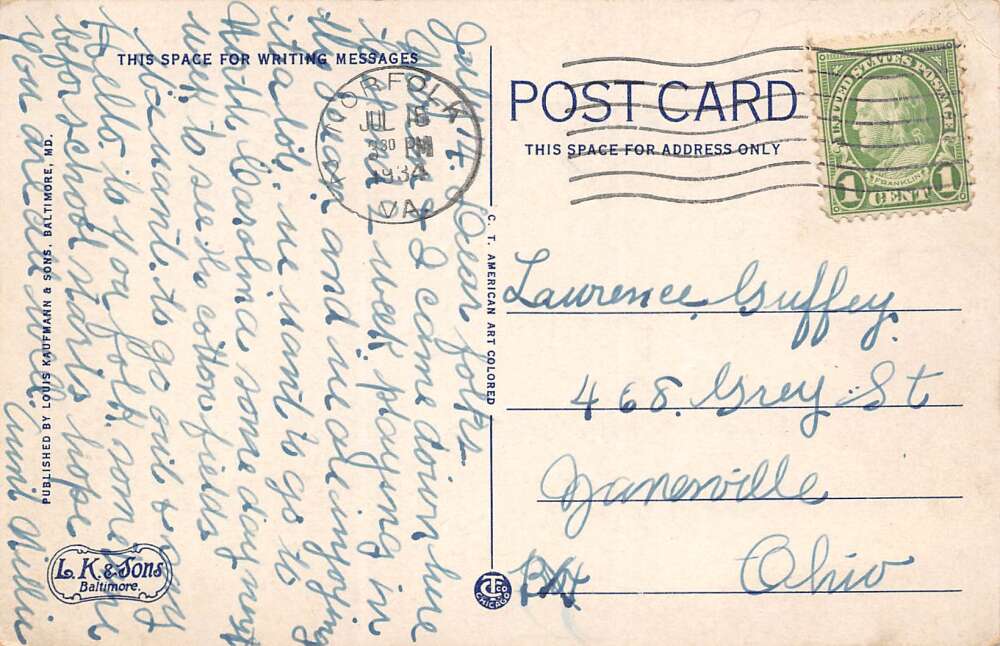 THIS SPACE FOR WRITING MESSAGES
July 14. Dear folks.
May and I came down here
this week playing in
the ocean and we are injoying
it a lot. we want to go to
North Carolina some day next
week to see the cotton fields
Also want to go out & say
Hello to you folk sometime
befor school starts hope
you are all well.
Aunt Nellie
PUBLISHED BY LOUIS KAUFMANN & SONS, BALTIMORE, MD.
L. K. & Sons
Baltimore.
C. T. AMERICAN ART COLORED
C T CO
CHICAGO
NORFOLK
JUL
330 PM
1934
VA.
POST CARD
THIS SPACE FOR ADDRESS ONLY
UNITED STATES POSTAGE
FRANKLIN
1 CENT 1
Lawrence Guffey.
468. Grey St
Zanesville
Ohio